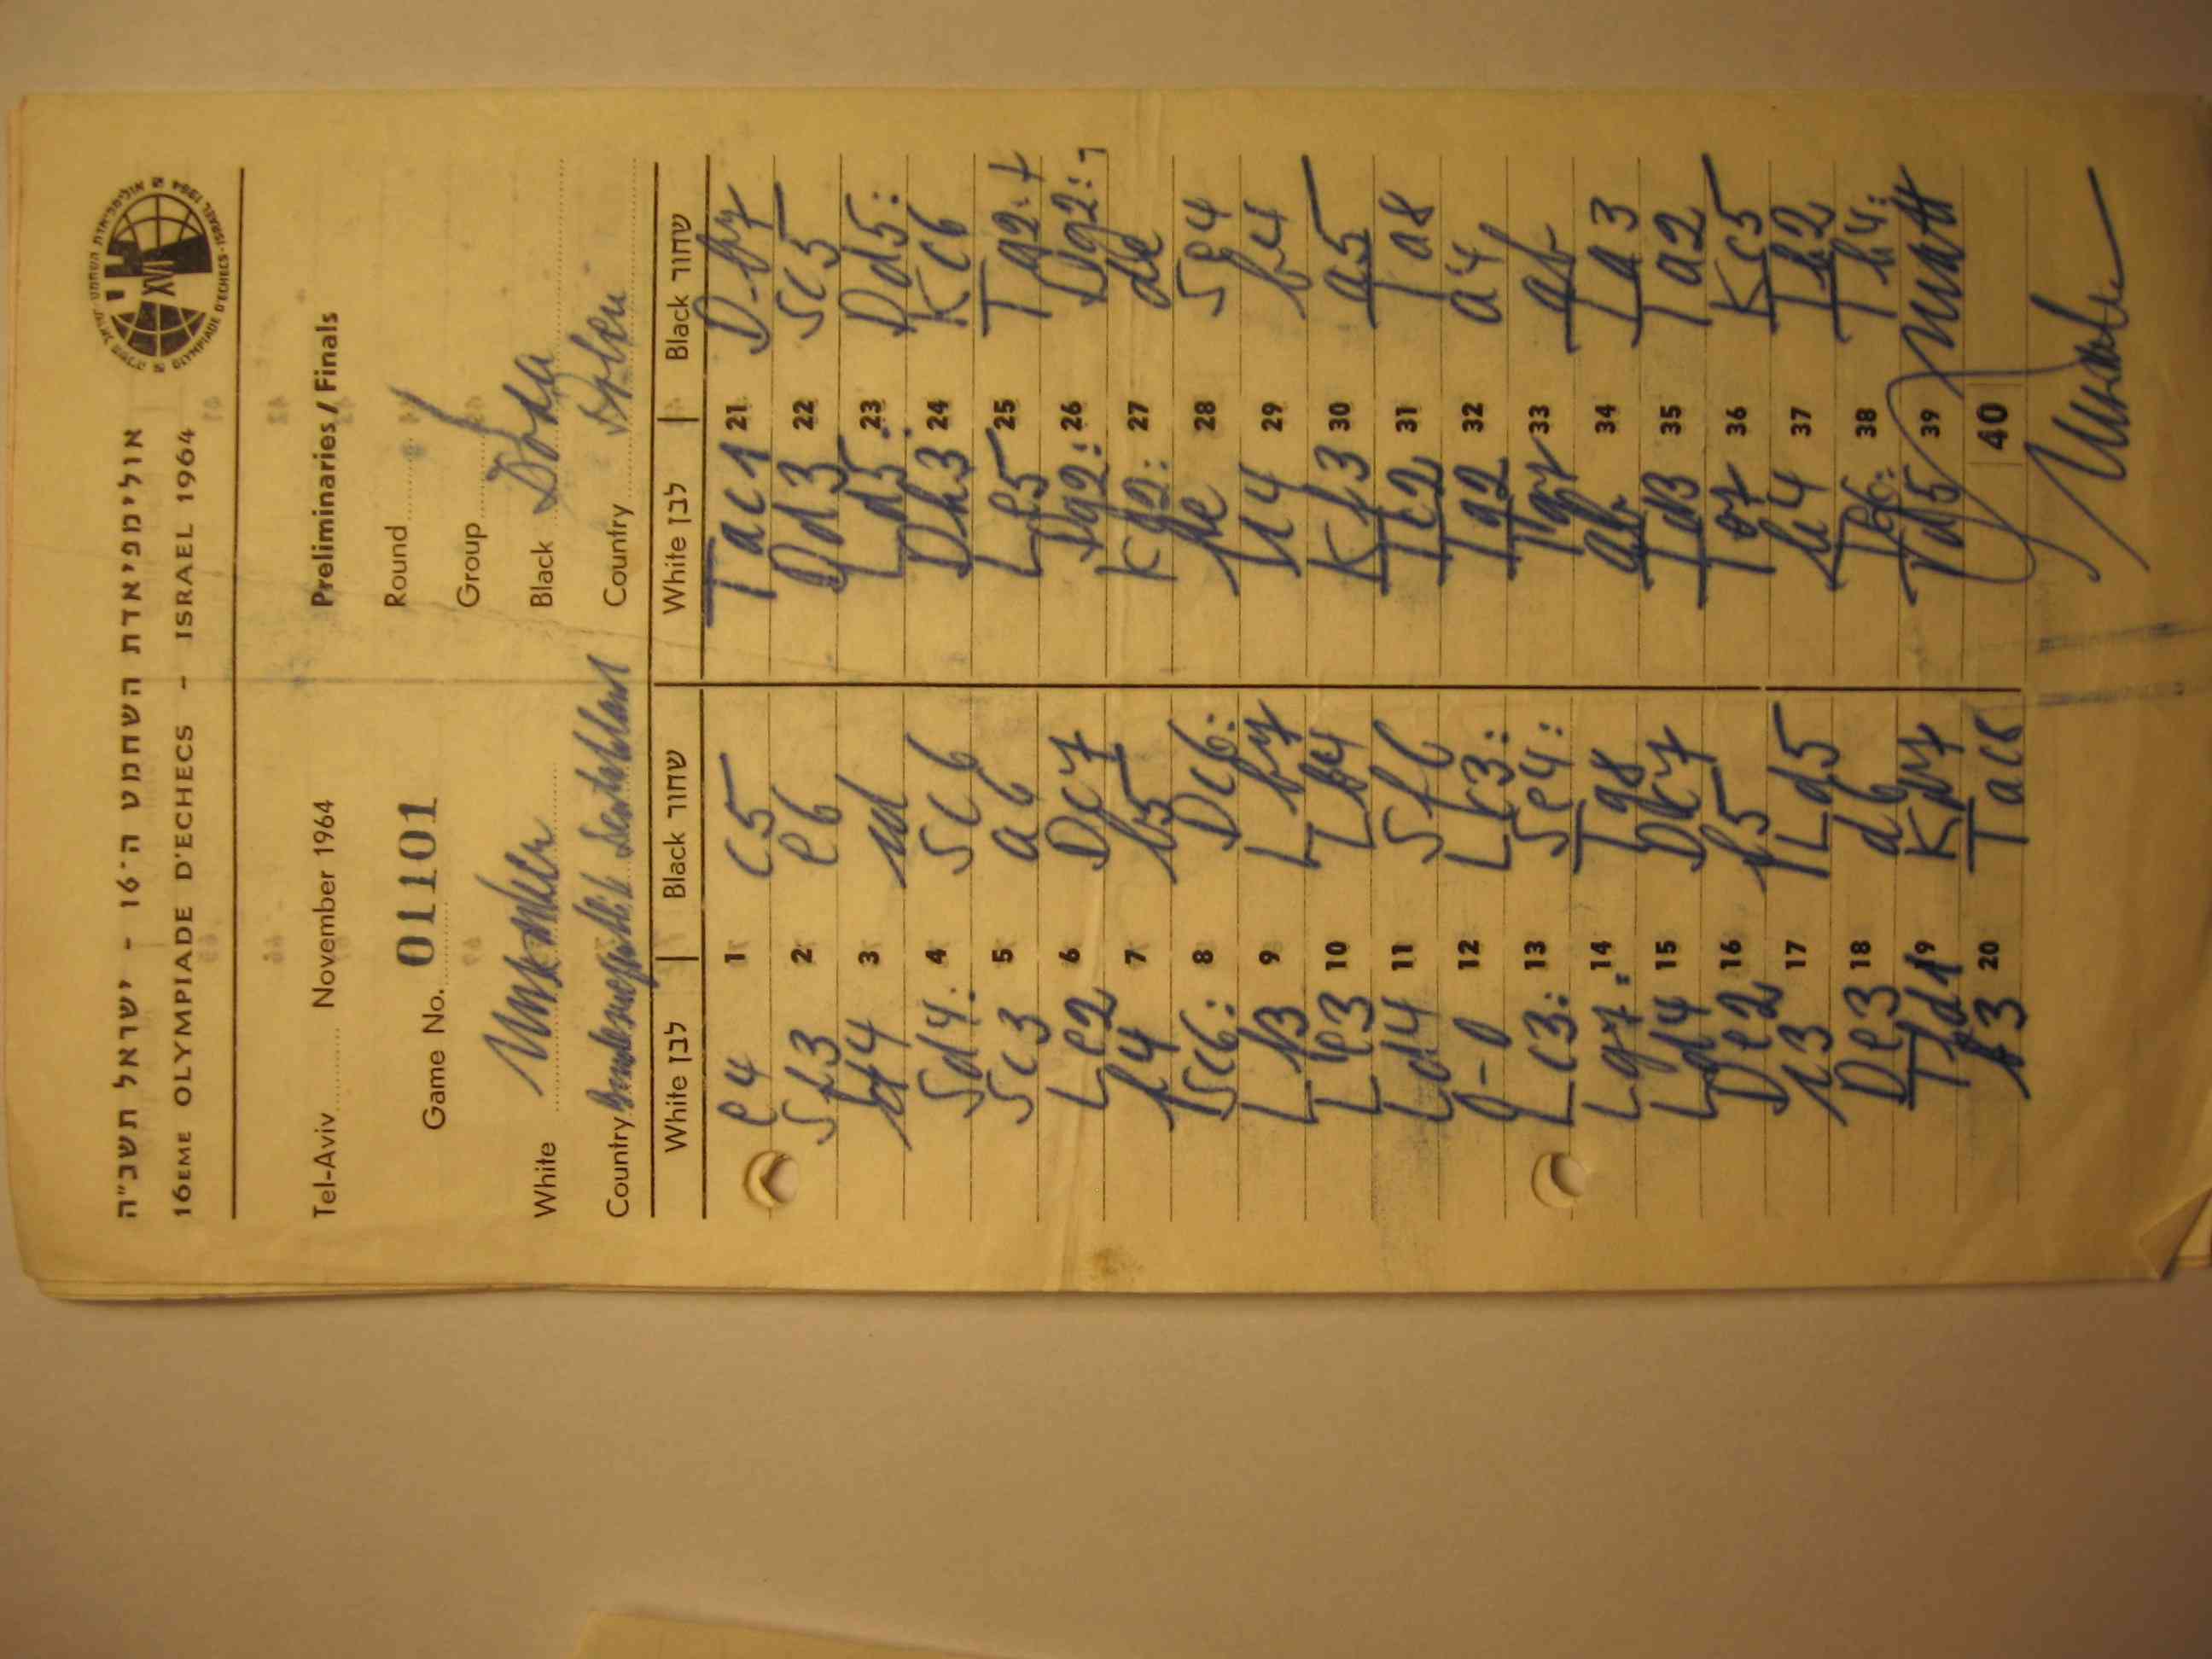 אולימפיאדת השחמט ה־16 - ישראל תשכ"ה
16EME OLYMPIADE D'ECHECS - ISRAEL 1964
XVI
OLYMPIADE D'ECHECS - ISRAEL 1964
Tel-Aviv November 1964 Preliminaries / Finals
Game No. 011101 Round
Group
White Unzicker Black Doda
Country Bundesrepublik Deutschland Country Polen
White לבן | Black שחור White לבן | Black שחור
e4 1 c5 Tac1 21 D-b7
Sf3 2 e6 Dd3 22 Sc5
d4 3 cd Ld5: 23 Dd5:
Sd4: 4 Sc6 Dh3 24 Kc6
Sc3 5 a6 Le5 25 Tg2:+
Le2 6 Dc7 Dg2: 26 Dg2:+
f4 7 b5 Kg2: 27 de
Sc6: 8 Dc6: fe 28 Se4
Lf3 9 Lb7 c4 29 b4
Le3 10 Lb4 Kf3 30 a5
Ld4 11 Sf6 Tc2 31 Ta8
0-0 12 Lc3: Tg2 32 a4
Lc3: 13 Se4: Tg7 33 ab
Lg7: 14 Tg8 ab 34 Ta3
Ld4 15 Dc7 Td3 35 Ta2
De2 16 f5 Tg7 36 Kc5
c3 17 Ld5 h4 37 Th2
De3 18 d6 Te6: 38 Th4:
Tfd1 19 Kd7 Td5 39 matt
b3 20 Tac8 40